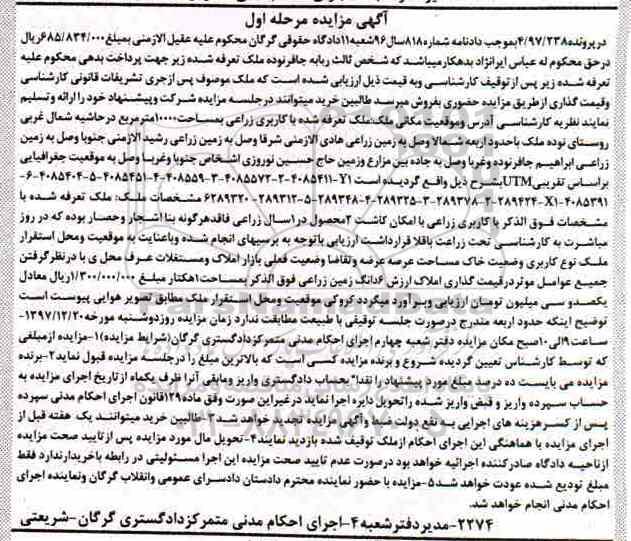 آگهی مزایده مرحله اول
در پرونده ۴/۹۷/۲۳۸ بموجب دادنامه شماره ۸۱۸ سال ۹۶ شعبه ۱۱ دادگاه حقوقی گرگان محکوم علیه عقیل الازمنی بمبلغ ۶۸۵/۸۳۴/۰۰۰ ریال
درحق محکوم له عباس ایرانژاد بدهکار میباشد که شخص ثالث ربابه جافرنوده ملک تعرفه شده زیر جهت پرداخت بدهی محکوم علیه
تعرفه شده زیر پس از توقیف کارشناسی وبه قیمت ذیل ارزیابی شده است که ملک موصوف پس ازجری تشریفات قانونی کارشناسی
وقیمت گذاری از طریق مزایده حضوری بفروش میرسد طالبین خرید میتوانند درجلسه مزایده شرکت وپیشنهاد خود را ارائه وتسلیم
نمایند نظریه کارشناسی آدرس وموقعیت مکانی ملک:ملک تعرفه شده با کاربری زراعی بمساحت ۱۰۰۰۰ مترمربع درحاشیه شمال غربی
روستای نوده ملک باحدود اربعه شمالا وصل به زمین زراعی هادی الازمنی شرقا وصل به زمین زراعی رشید الازمنی جنوبا وصل به زمین
زراعی ابراهیم جافرنوده وغربا وصل به جاده بین مزارع وزمین حاج حسین نوروزی اشخاص جنوبا وغربا وصل به موقعیت جغرافیایی
براساس تقریبی UTM بشرح ذیل واقع گردیده است Y۱-۴۰۸۵۴۱۱-۲-۴۰۸۵۵۷۲-۳-۴۰۸۵۵۹-۴-۴۰۸۵۴۵۱-۵-۴۰۸۵۴۰۴-۶-
۴۰۸۵۳۹۱-X۱-۲۸۹۴۲۴-۲-۲۸۹۳۷۸-۳-۲۸۹۳۲۵-۴-۲۸۹۳۴۸-۵-۲۸۹۳۱۲-۶۲۸۹۳۲۰ مشخصات ملک: ملک تعرفه شده با
مشخصات فوق الذکر با کاربری زراعی با امکان کاشت ۲محصول در اسال زراعی فاقدهرگونه بنا اشجار وحصار بوده که در روز
مباشرت به کارشناسی تحت زراعت باقلا قرارداشت ارزیابی باتوجه به برسیهای انجام شده وباعنایت به موقعیت ومحل استقرار
ملک نوع کاربری وضعیت خاک مساحت عرصه عرضه وتقاضا وضعیت فعلی بازار املاک ومستغلات عرف محل ی با درنظرگرفتن
جمیع عوامل موثر درقیمت گذاری املاک ارزش ۶دانگ زمین زراعی فوق الذکر بمساحت ۱هکتار مبلغ ۱/۳۰۰/۰۰۰/۰۰۰ ریال معادل
یکصدو سی میلیون تومان ارزیابی وبرآورد میگردد کروکی موقعیت ومحل استقرار ملک مطابق تصویر هوایی پیوست است
توضیح اینکه حدود اربعه مندرج درصورت جلسه توقیفی با طبیعت مطابقت ندارد زمان مزایده روزدوشنبه مورخه ۱۳۹۷/۱۲/۲۰
ساعت ۹الی ۱۰صبح مکان مزایده دفتر شعبه چهارم اجرای احکام مدنی متمرکزدادگستری گرگان(شرایط مزایده) ۱-مزایده ازمبلغی
که توسط کارشناس تعیین گردیده شروع و برنده مزایده کسی است که بالاترین مبلغ را درجلسه مزایده قبول نماید ۲-برنده
مزایده می بایست ده درصد مبلغ مورد پیشنهاد را نقدا" بحساب دادگستری واریز ومابقی آنرا ظرف یکماه از تاریخ اجرای مزایده به
حساب سپرده واریز و قبض واریز شده راتحویل دایره اجرا نماید درغیراین صورت وفق ماده ۱۲۹ قانون اجرای احکام مدنی سپرده
پس از کسرهزینه های اجرایی به نفع دولت ضبط وآگهی مزایده تجدید خواهد شد ۳-طالبین خرید میتوانند یک هفته قبل از
اجرای مزایده با هماهنگی این اجرای احکام ازملک توقیف شده بازدید نمایند ۴-تحویل مال مورد مزایده پس ازتایید صحت مزایده
ازناحیه دادگاه صادرکننده اجرائیه خواهد بود درصورت عدم تایید صحت مزایده این اجرا مسئولیتی در رابطه باخریدارندارد فقط
مبلغ تودیع شده عودت خواهد شد ۵-مزایده با حضور نماینده محترم دادستان دادسرای عمومی وانقلاب گرگان ونماینده اجرای
احکام مدنی انجام خواهد شد.
۲۲۷۴-مدیردفترشعبه ۴-اجرای احکام مدنی متمرکزدادگستری گرگان-شریعتی